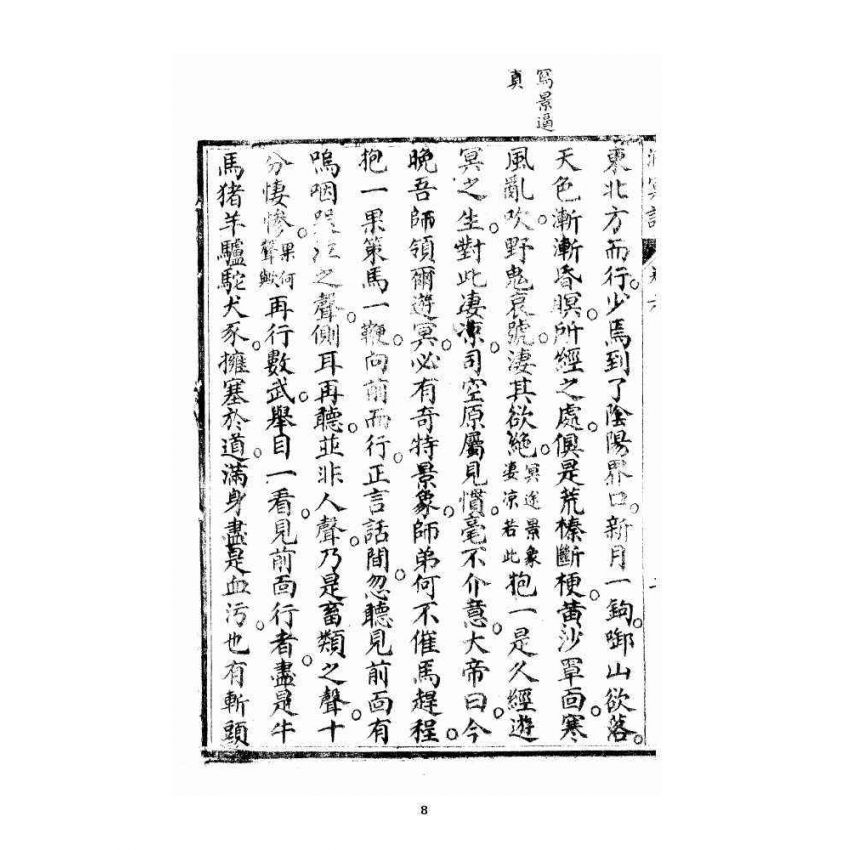 寫景逼
真
東北方而行。少焉到了陰陽界口。新月一鉤。啣山欲落。
天色漸漸昏暝。所經之處。俱是荒榛斷梗。黃沙罩面。寒
風亂吹。野鬼哀號。淒其欲絕。冥途景象淒涼若此抱一是久經遊
冥之生。對此淒涼。司空原屬見慣。毫不介意。大帝曰。今
晚吾師領爾遊冥。必有奇特景象。師弟何不催馬趕程。
抱一果策馬一鞭。向前而行。正言話間。忽聽見前面有
嗚咽之聲。側耳再聽。並非人聲。乃是畜類之聲。十
分悽慘。果何聲歟再行數武。舉目一看。見前面行者。盡是牛
馬猪羊驢駝犬豕。擁塞於道。滿身盡是血污也。有斬頭
8